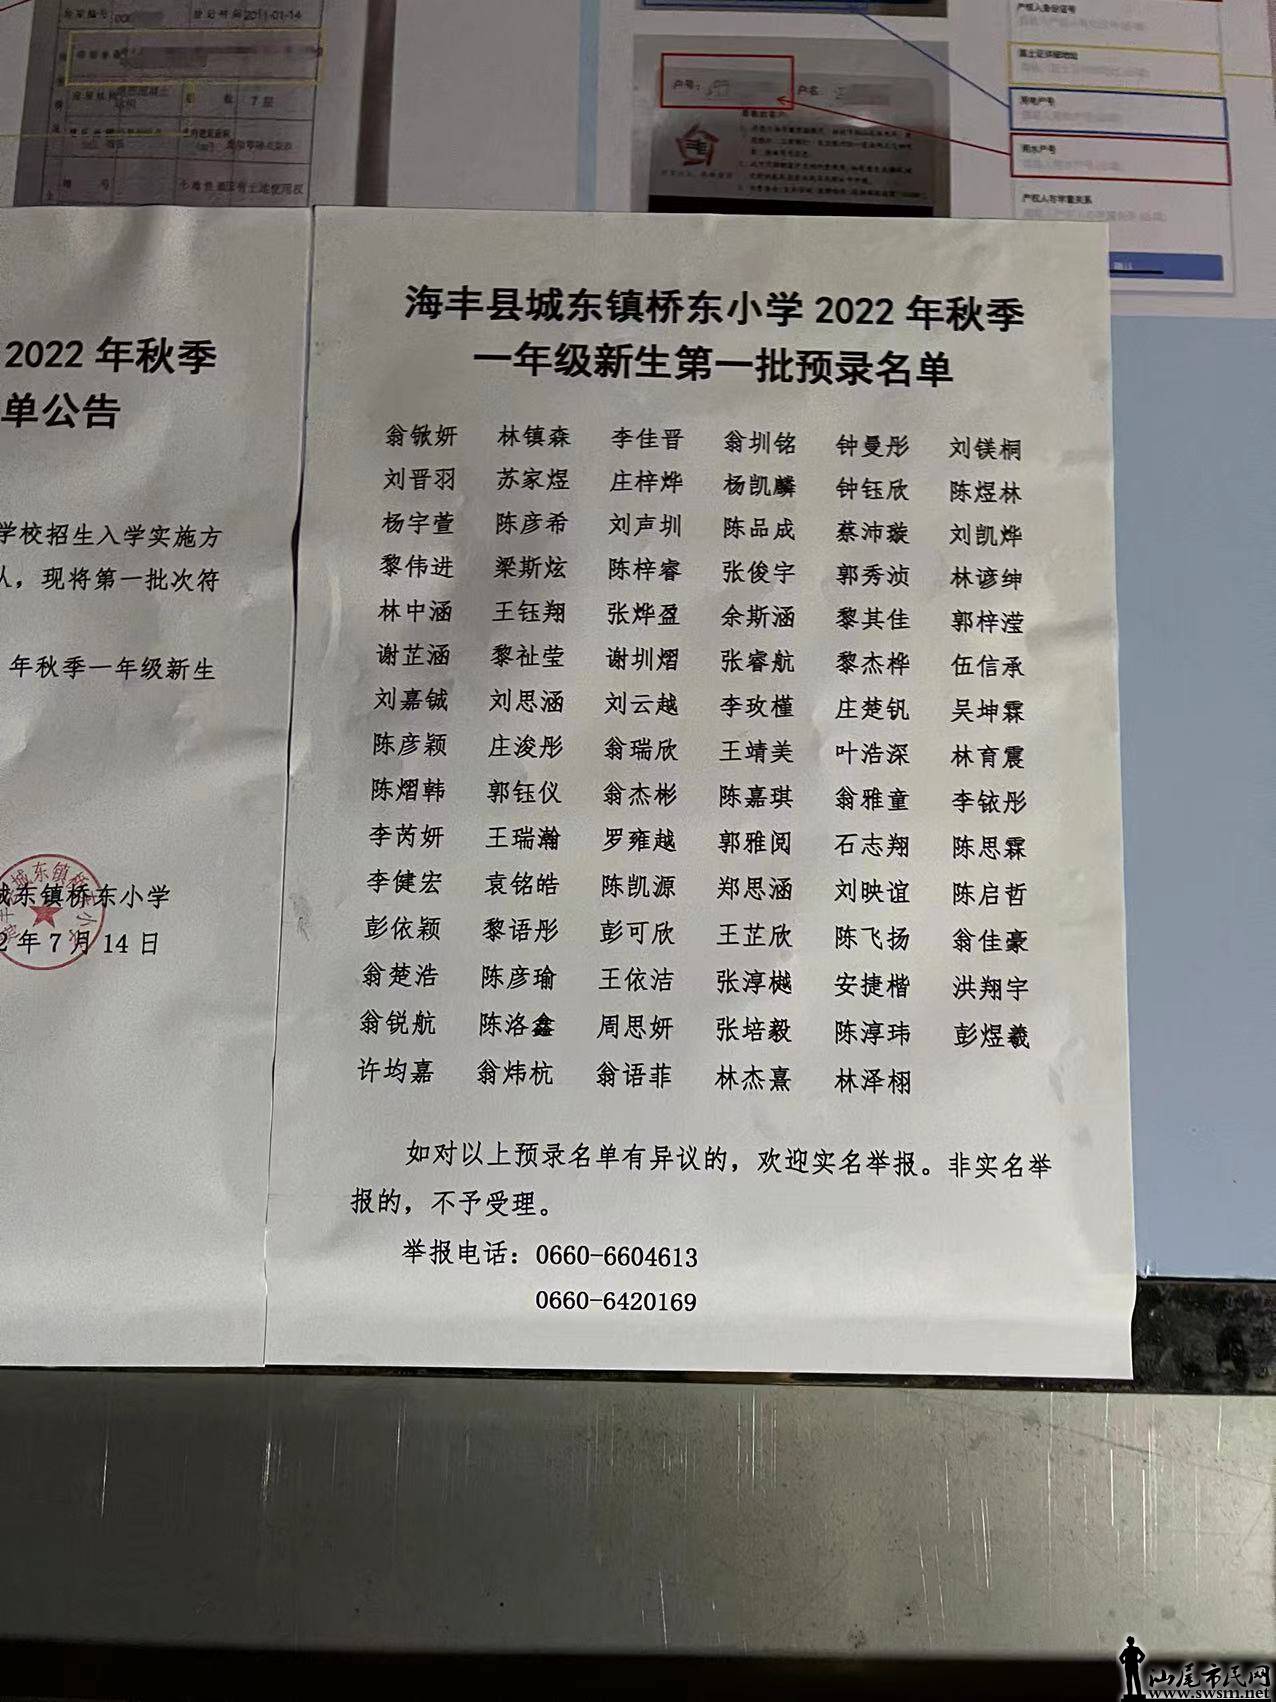 登记时间 2011-01-14
7层
户号：
户名：
产权人身份证号
用电户号
用水户号
产权人与学童关系
2022 年秋季
单公告
学校招生入学实施方
现将第一批次符
年秋季一年级新生
城东镇桥东小学
2 年 7 月 14 日
海丰县城东镇桥东小学 2022 年秋季
一年级新生第一批预录名单
翁锨妍 林镇森 李佳晋 翁圳铭 钟曼彤 刘镁桐
刘晋羽 苏家煜 庄梓烨 杨凯麟 钟钰欣 陈煜林
杨宇萱 陈彦希 刘声圳 陈品成 蔡沛璇 刘凯烨
黎伟进 梁斯炫 陈梓睿 张俊宇 郭秀浈 林谚绅
林中涵 王钰翔 张烨盈 余斯涵 黎其佳 郭梓滢
谢芷涵 黎祉莹 谢圳熠 张睿航 黎杰桦 伍信承
刘嘉铖 刘思涵 刘云越 李玫槿 庄楚钒 吴坤霖
陈彦颖 庄浚彤 翁瑞欣 王靖美 叶浩深 林育震
陈熠韩 郭钰仪 翁杰彬 陈嘉琪 翁雅童 李铱彤
李芮妍 王瑞瀚 罗雍越 郭雅阅 石志翔 陈思霖
李健宏 袁铭皓 陈凯源 郑思涵 刘映谊 陈启哲
彭依颖 黎语彤 彭可欣 王芷欣 陈飞扬 翁佳豪
翁楚浩 陈彦瑜 王依洁 张淳樾 安捷楷 洪翔宇
翁锐航 陈洛鑫 周思妍 张培毅 陈淳玮 彭煜羲
许均嘉 翁炜杭 翁语菲 林杰熹 林泽栩
如对以上预录名单有异议的，欢迎实名举报。非实名举
报的，不予受理。
举报电话：0660-6604613
0660-6420169
汕尾市民网
www.swsm.net